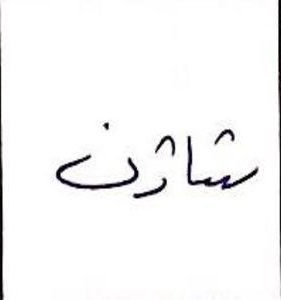 شاژن